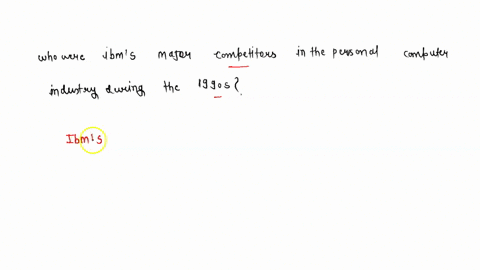 who were ibm's major competitors in the personal computer
industry during the 1990s?
Ibm's